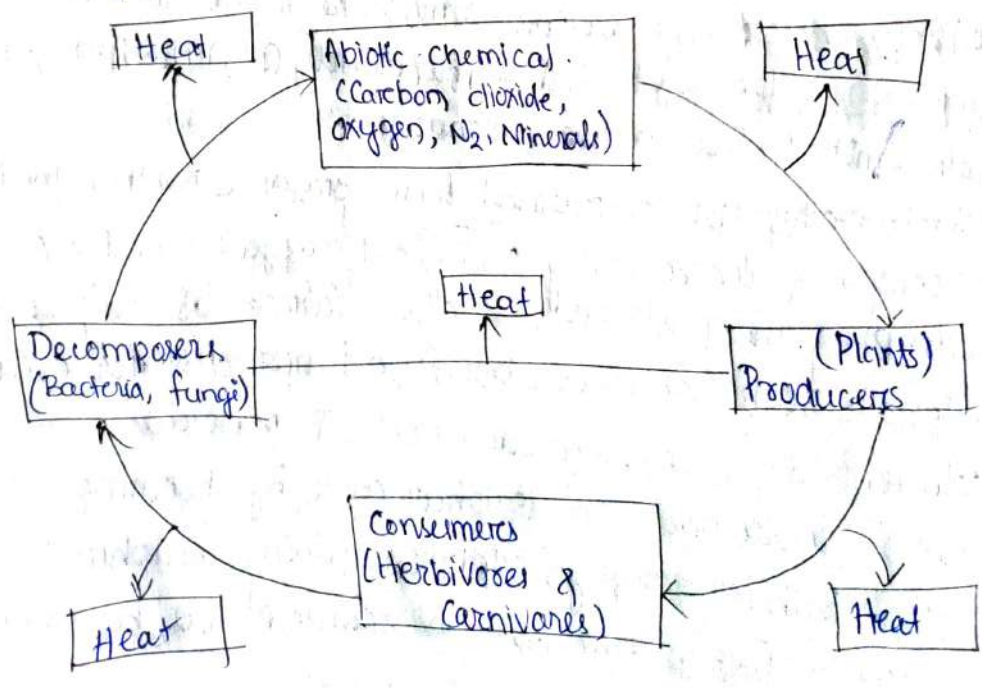 Heat
Abiotic chemical.
(Carbon dioxide,
oxygen, N2, Minerals)
Heat
Heat
Decomposers
(Bacteria, fungi)
(Plants)
Producers
Consumers
(Herbivores &
Carnivores)
Heat
Heat